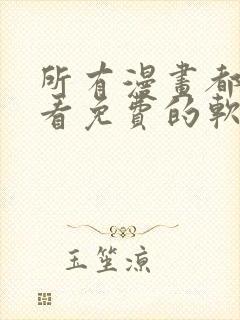 所有漫畫都
看免費的軟
玉笙涼